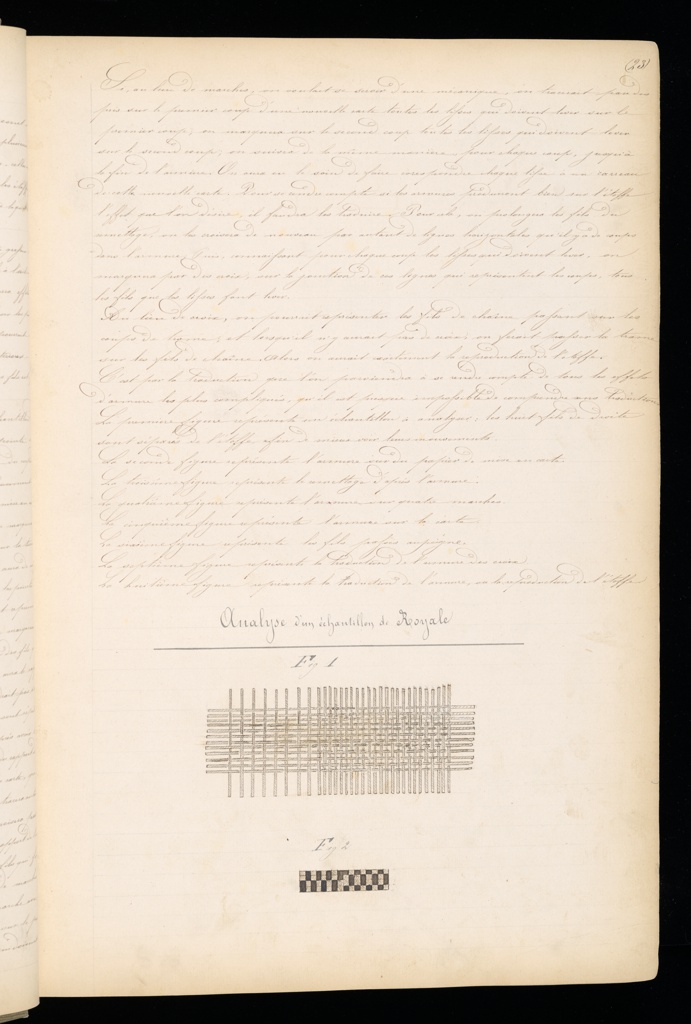 (23)
Si au lieu de marches, on voulait se servir d'une mécanique, on
sur le premier coup d'une nouvelle carte toutes les lisses qui doivent lever sur le
premier coup, on marquera sur le second coup toutes les lisses qui doivent lever
sur le second coup, on suivra de la même manière pour chaque coup, jusqu'à
la fin de l'armure. On aura eu le soin de faire correspondre chaque lisse à un
de cette nouvelle carte. Pour se rendre compte si les armures bien sur l'étoffe
l'effet que l'on désire, il faudra les traduire. Pour cela, on prolongera les fils du
remettage, on les de nouveau par autant de lignes horizontales qu'il y a de coups
dans l'armure. Puis, connaissant pour chaque coup les lisses qui doivent lever, on
marquera par des croix, sur la jonction de ces lignes qui représentent les coups, tous
les fils que les lisses font lever.
Au lieu de croix, on pourrait représenter les fils de chaîne passant sur les
coups de trame, et lorsqu'il n'y aurait pas de croix, on ferait passer la trame
sur les fils de chaîne, alors on aurait exactement la reproduction de l'étoffe.
C'est par la traduction que l'on parviendra à se rendre compte de tous les effets
d'armure les plus compliqués, qu'il est presque impossible de comprendre sans traduction
La première figure représente un échantillon à analyser, les huit fils de droite
sont séparés de l'étoffe afin de mieux voir leurs mouvements.
La seconde figure représente l'armure sur du papier de mise en carte.
La troisième figure représente le remettage d'après l'armure.
La quatrième figure représente l'armure sur quatre marches.
La cinquième figure représente l'armure sur la carte.
La sixième figure représente les fils passés au peigne.
La septième figure représente la traduction de l'armure des croix.
La huitième figure représente la traduction de l'armure, ou la reproduction de l'étoffe
Analyse d'un échantillon de Royale
Fig 1
Fig 2